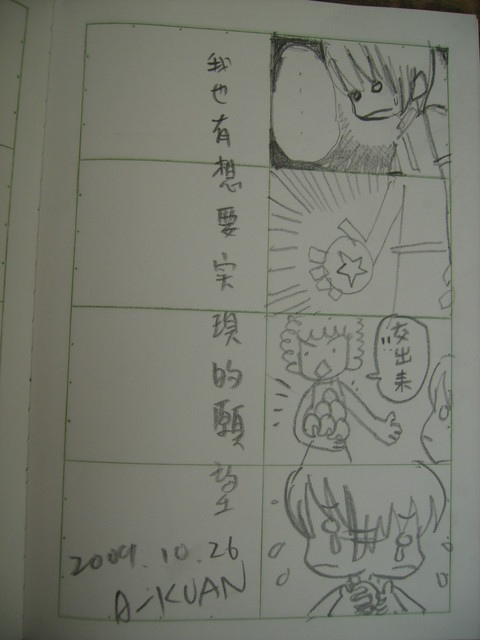 交出來
我也有想要實現的願望
2009.10.26
A-KUAN